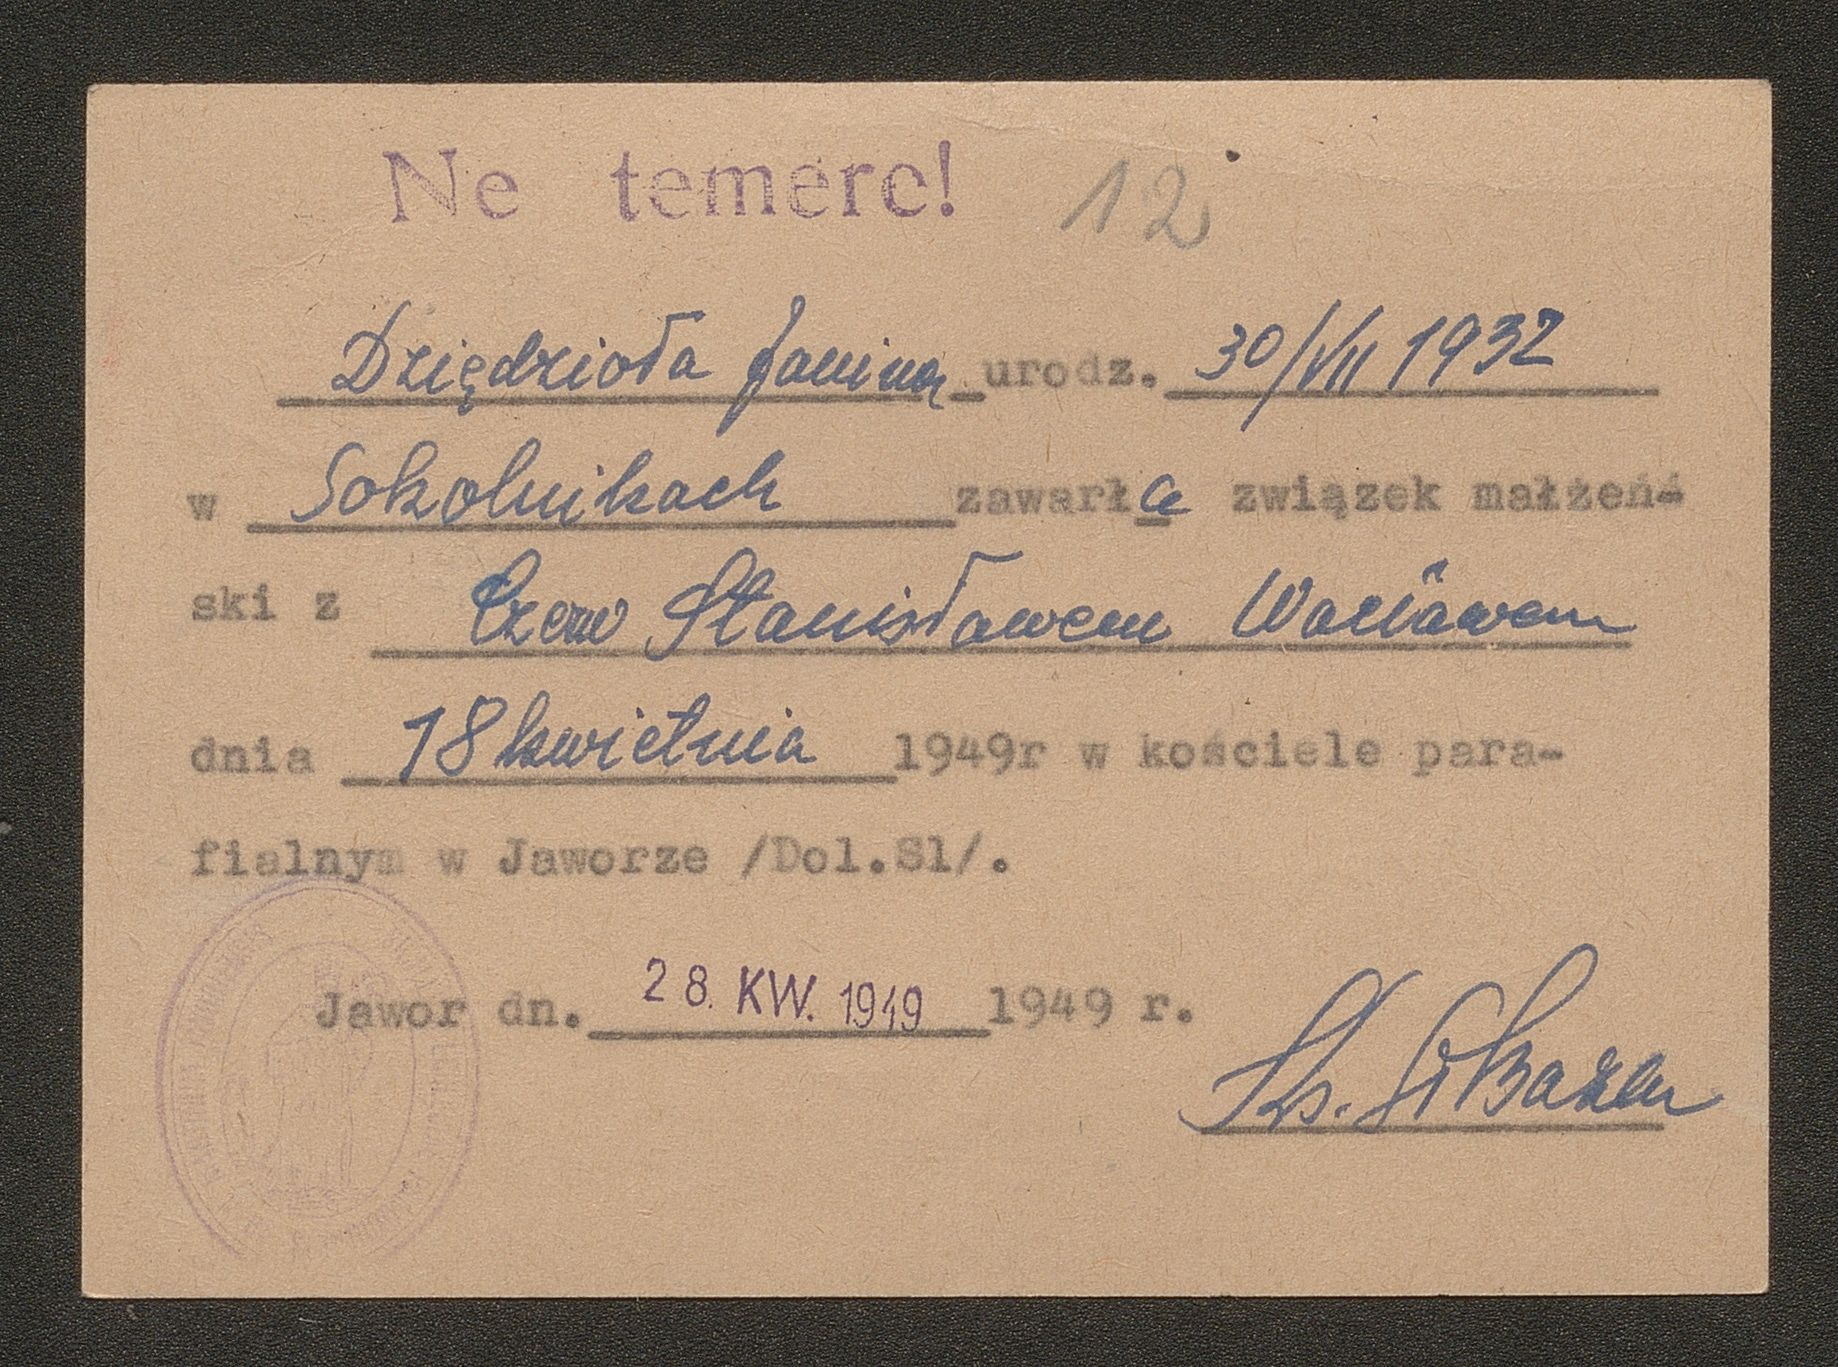 Ne temere! 12
Dziędzioła Janina urodz. 30/VII 1932
w Sokolnikach zawarła związek małżeń-
ski z Czerw Stanisławem Wacławem
dnia 18 kwietnia 1949r w kościele para-
fialnym w Jaworze /Dol.Sl/.
Jawor dn. 28. KW. 1949 1949 r.
Ks.